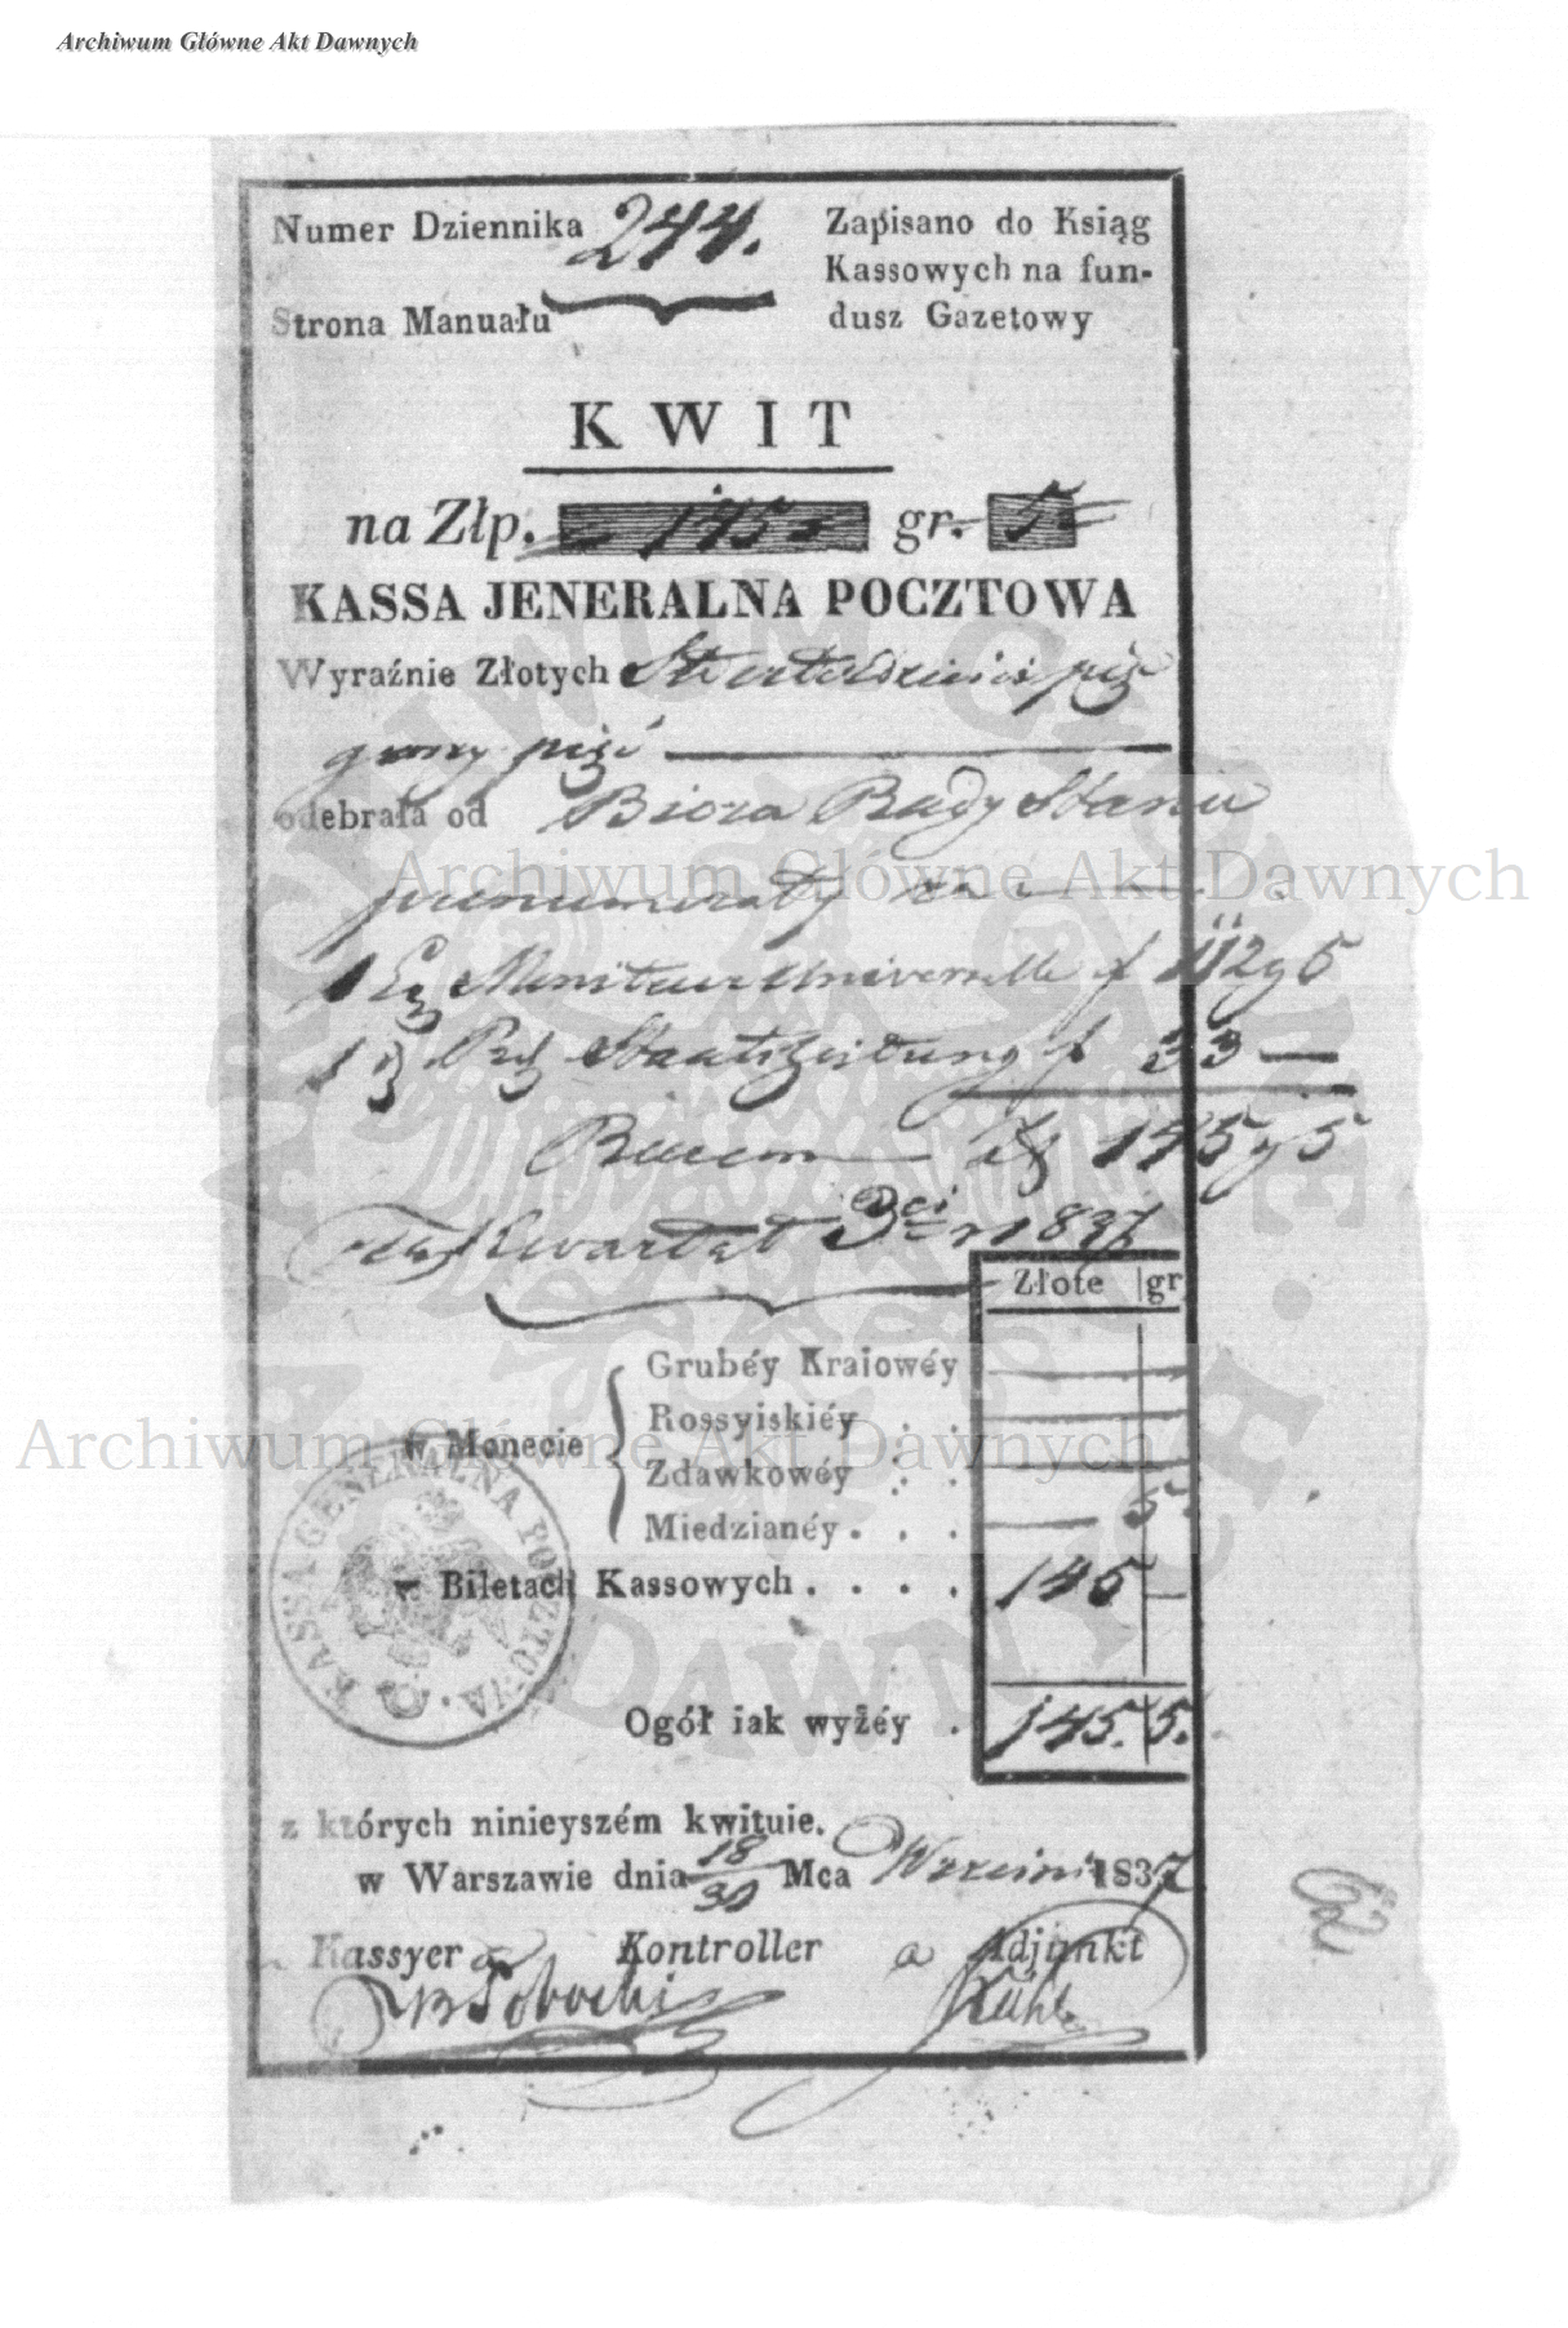 Archiwum Główne Akt Dawnych
Numer Dziennika 244.
Strona Manuału
Zapisano do Ksiąg
Kassowych na fun-
dusz Gazetowy
KWIT
na Złp. 145 gr. 5
KASSA JENERALNA POCZTOWA
Wyraźnie Złotych Sto czterdzieści pięć
groszy pięć
odebrała od Biora Rady Stanu
prenumeraty za
1 Eg Moniteur Universelle f 112 g 5
1 g Prß Staatszeitung f 33 —
Razem zł 145 g 5
Na Kwartał 3ci r 1837
Złote gr
w Monecie
Grubéy Kraiowéy
Rossyiskiéy . .
Zdawkowéy . .
Miedzianéy . . . 5
w Biletach Kassowych . . . . 145 —
Ogół iak wyżéy . 145. 5.
KASSA GENERALNA POCZTOWA
z których ninieyszém kwituie.
w Warszawie dnia 18/30 Mca Września 1837
Kassyer Kontroller a Adjunkt
Sobocki Kühl
62
Archiwum Główne Akt Dawnych
Archiwum Główne Akt Dawnych